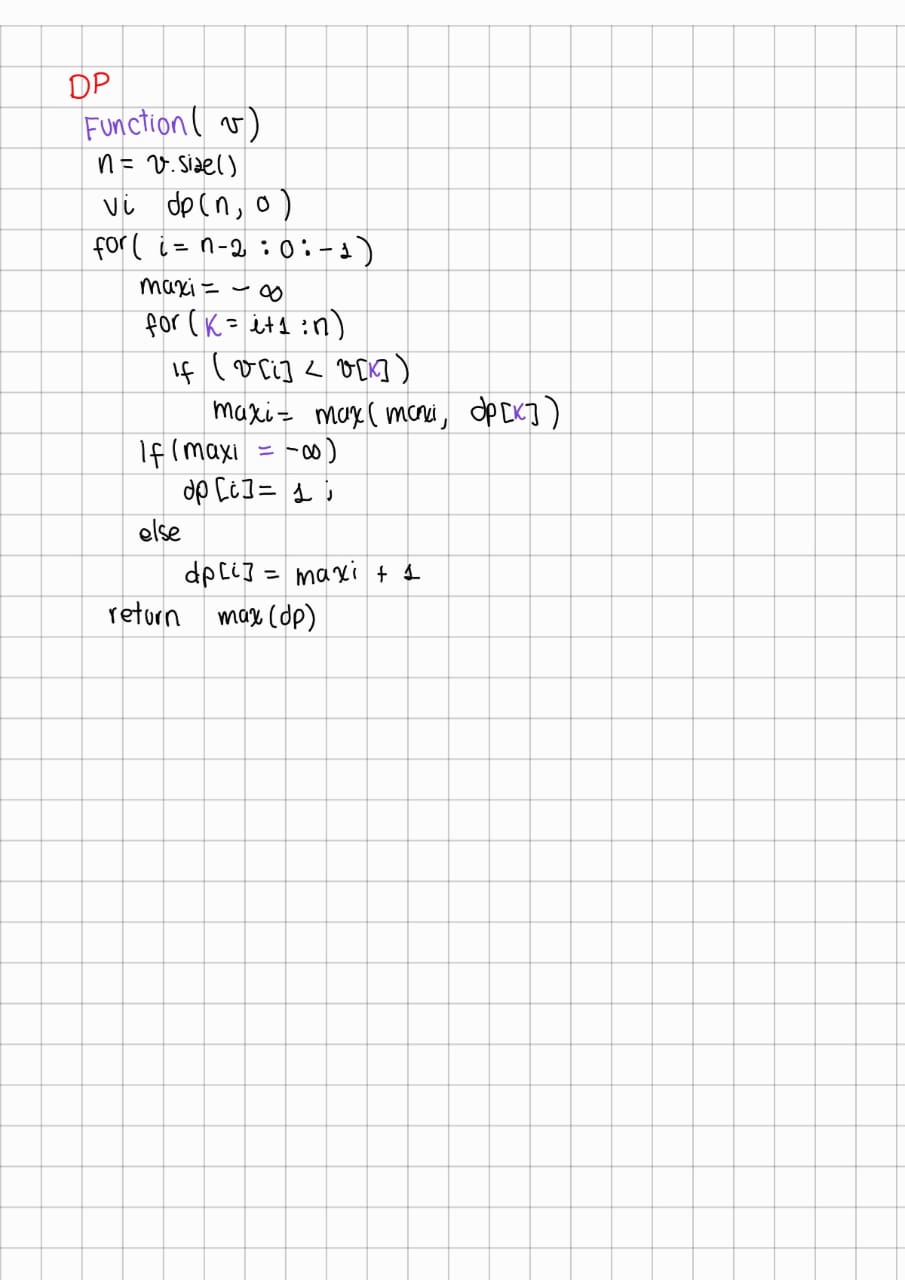 DP
Function( v)
n = v.size()
vi dp(n, 0)
for( i = n-2 : 0 : -1)
maxi = - ∞
for (K = i+1 : n)
if (v[i] < v[K])
maxi = max( maxi, dp[K])
If (maxi = -∞)
dp[i] = 1 ;
else
dp[i] = maxi + 1
return max(dp)